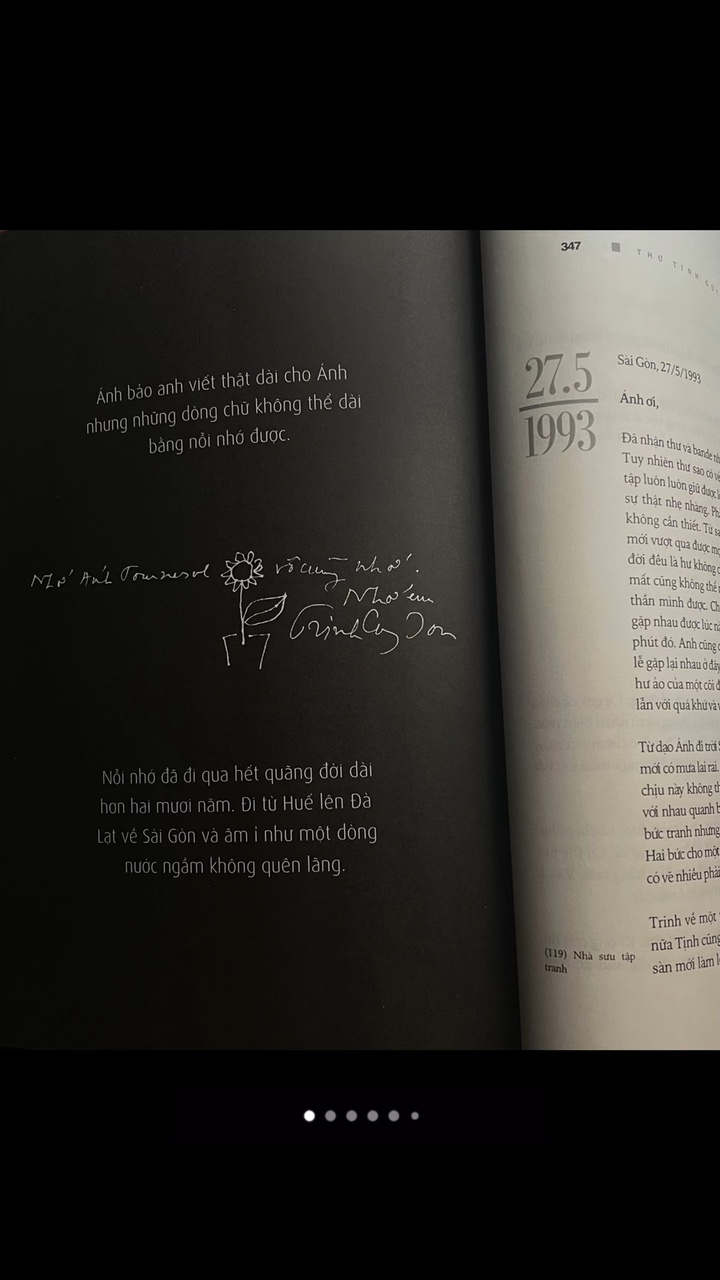 Ánh bảo anh viết thật dài cho Ánh
nhưng những dòng chữ không thể dài
bằng nỗi nhớ được.
Nhớ Ánh Tournesol vô cùng nhớ.
Nhớ em
Trịnh Công Sơn
Nỗi nhớ đã đi qua hết quãng đời dài
hơn hai mươi năm. Đi từ Huế lên Đà
Lạt về Sài Gòn và âm ỉ như một dòng
nước ngầm không quên lãng.
347
THƯ TÌNH
27.5
1993
Sài Gòn, 27/5/1993
Ánh ơi,
Đã nhận thư và bande
Tuy nhiên thư sao có
tập luôn luôn giữ được
sự thật nhẹ nhàng.
không cần thiết. Từ
mới vượt qua được
đời đều là hư không
mất cũng không thể
thần minh được.
gặp nhau được lúc
phút đó. Anh cũng
lẽ gặp lại nhau ở
hư ảo của một cõi
lẫn với quá khứ và
Từ dạo Ánh đi trời
mới có mưa lai rai.
chịu này không
với nhau quanh
bức tranh nhưng
Hai bức cho một
có vẽ nhiều
Trinh về một
nữa Tịnh cũng
sàn mới làm
(119) Nhà sưu tập
tranh